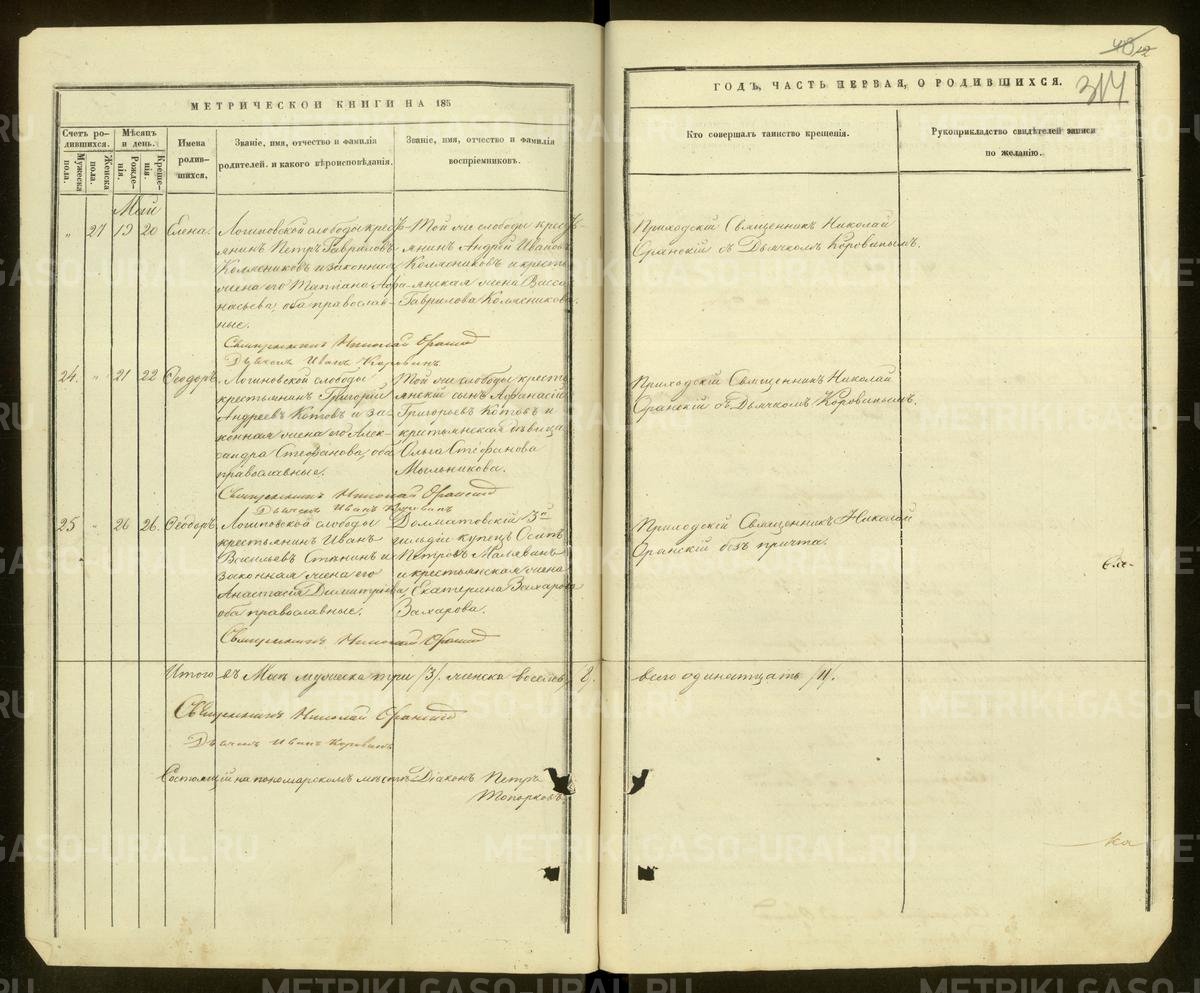 МЕТРИЧЕСКОЙ КНИГИ НА 185
Счетъ родившихся.
Мужеска пола.
Женска пола.
Мѣсяцъ и день.
Рожденія.
Крещенія.
Имена родившихся.
Званіе, имя, отчество и фамилія
родителей, и какого вѣроисповѣданія.
Званіе, имя, отчество и фамилія
воспріемниковъ.
Май
" 27 19 20 Елена.
Логиновской слободы крестьянинъ
Петръ Гавриловъ
Колясниковъ и законная
жена его Татіана Афанасьева,
оба православные.
Той же слободы крестьянинъ
Андрей Ивановъ
Колясниковъ и крестьянская
жена Васса
Гаврилова Колясникова.
Священникъ Николай Оранскій
Дьячекъ Иванъ Коровинъ.
24. " 21 22 Ѳеодоръ.
Логиновской слободы
крестьянинъ Григорій
Андреевъ Котовъ и законная
жена его Александра
Стефанова, оба
православные.
Той же слободы крестьянскій
сынъ Афанасій
Григорьевъ Котовъ и
крестьянская дѣвица
Ольга Стефанова
Мыльникова.
Священникъ Николай Оранскій
Дьячекъ Иванъ Коровинъ
25 " 26 26. Ѳеодоръ.
Логиновской слободы
крестьянинъ Иванъ
Васильевъ и
законная жена его
Анастасія Димитріева,
оба православные.
Долматовскій 3й
гильдіи купецъ
Петровъ
и крестьянская жена
Екатерина Захарова
Захарова.
Священникъ Николай Оранскій
Итого въ Маѣ мужеска три /3/. женска восемь /8/.
Священникъ Николай Оранскій
Дьячекъ Иванъ Коровинъ
Состоящій на пономарскомъ мѣстѣ Діаконъ Петръ
Топорковъ.
48 12
314
ГОДЪ, ЧАСТЬ ПЕРВАЯ, О РОДИВШИХСЯ.
Кто совершалъ таинство крещенія.
Рукоприкладство свидѣтелей записи
по желанію.
Приходскій Священникъ Николай
Оранскій съ Дьячкомъ Коровинымъ.
Приходскій Священникъ Николай
Оранскій съ Дьячкомъ Коровинымъ.
Приходскій Священникъ Николай
Оранскій безъ причта.
всего одинатцать /11/.
METRIKI.GASO-URAL.RU